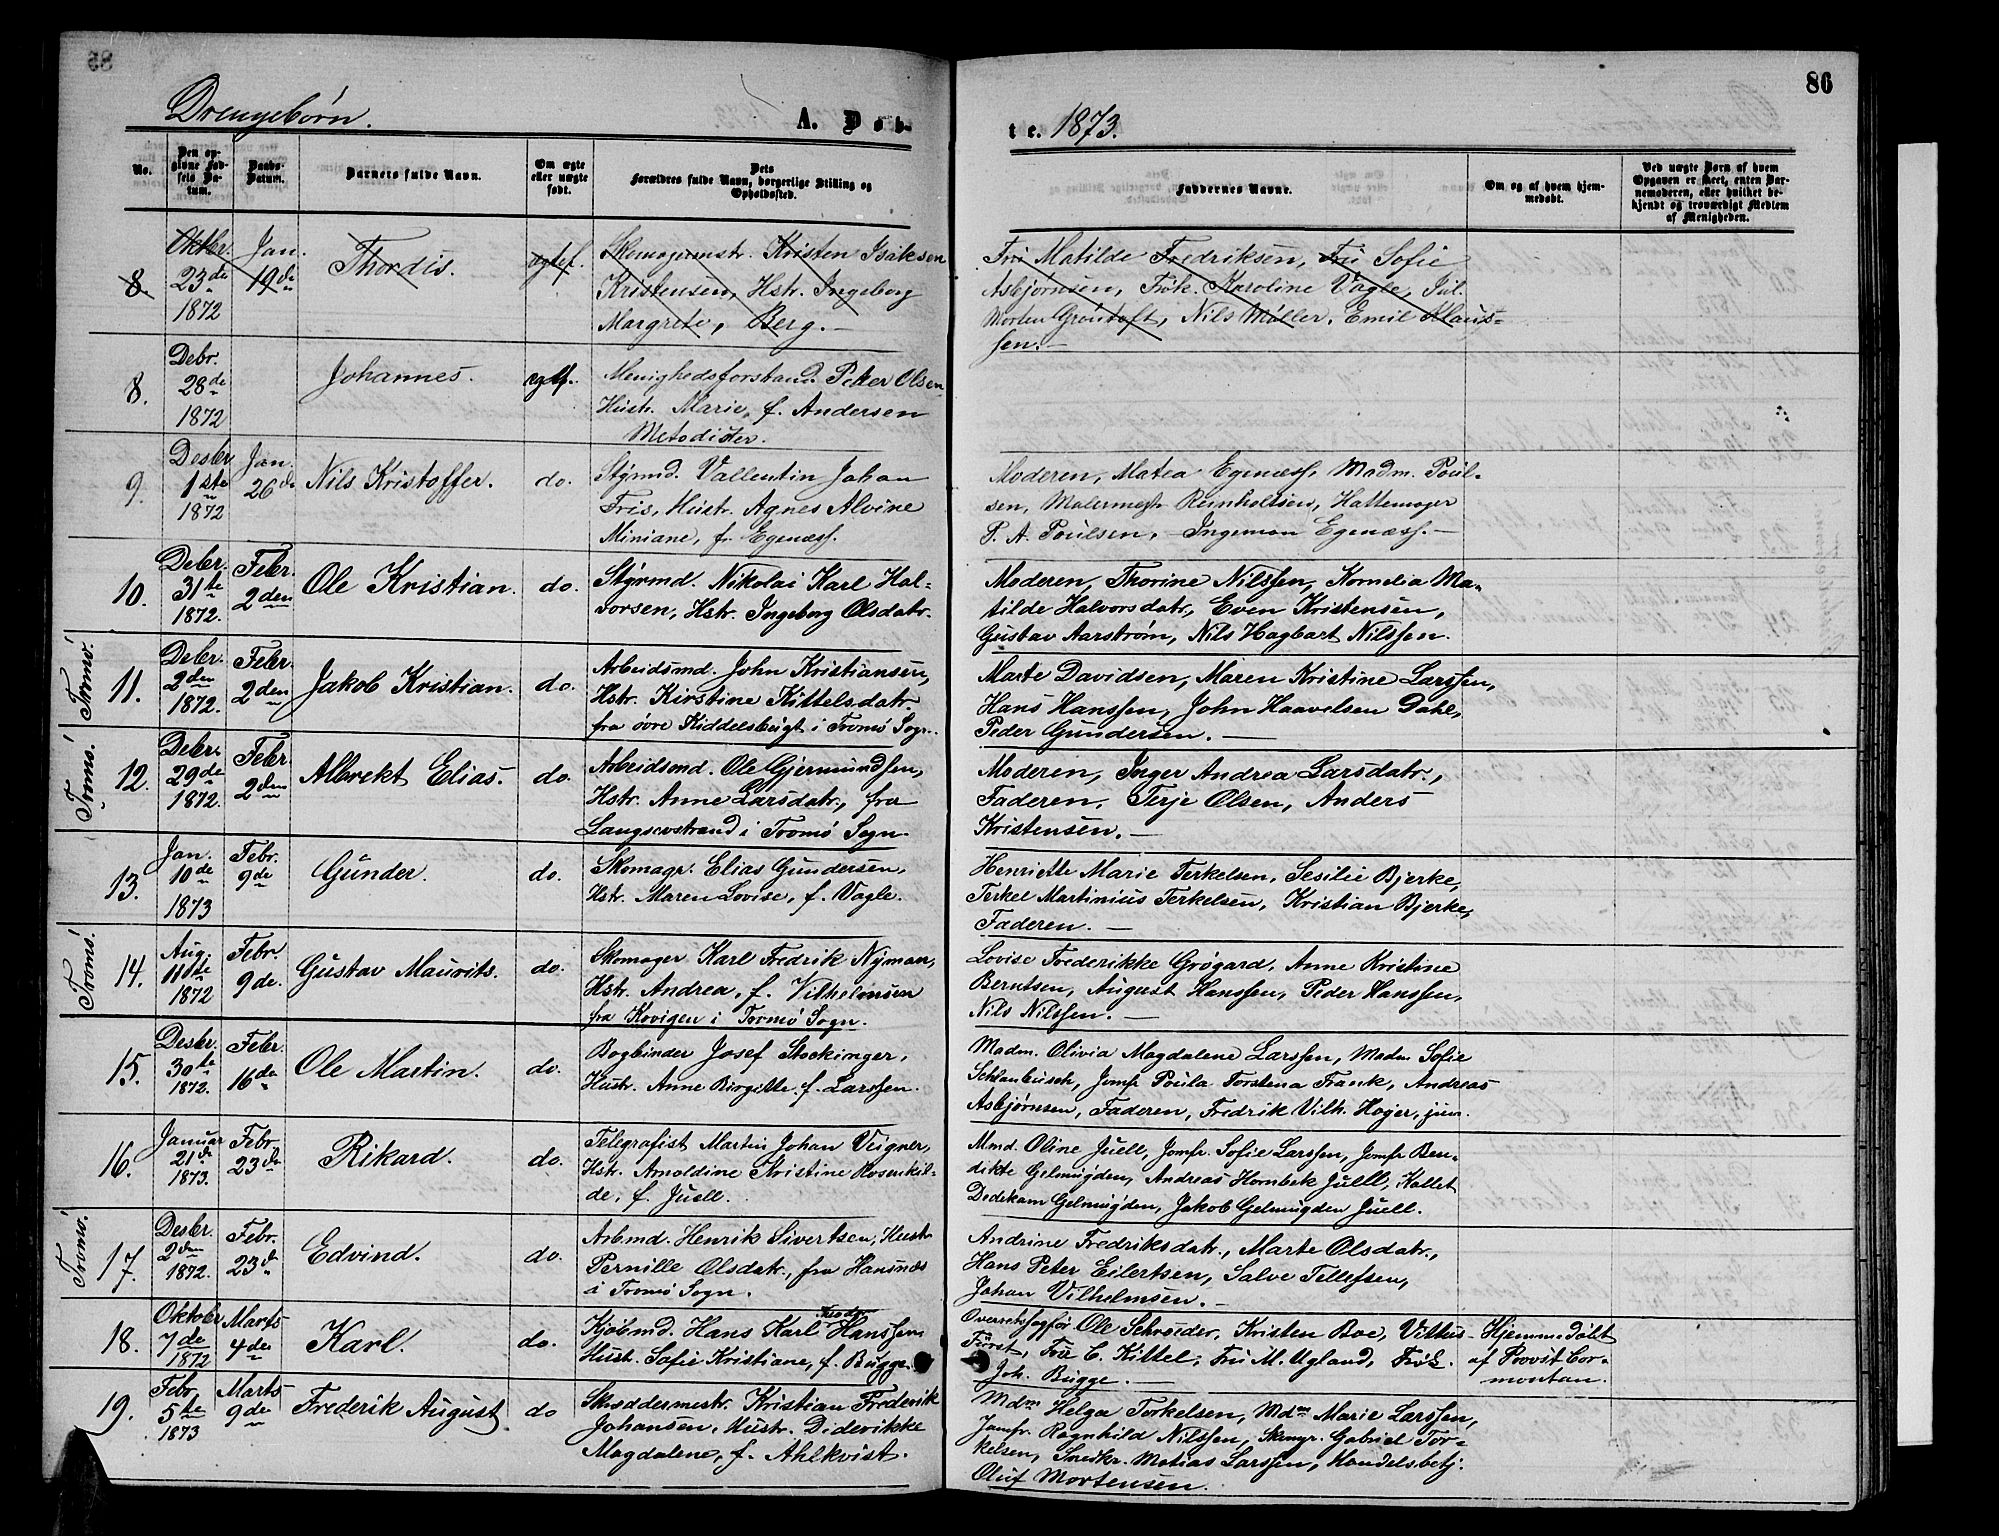 85
86
Drengebørn.
A. Døb-
te. 1873.
No.
Den op-
givne Fød-
sels Da-
tum.
Daabs-
Datum.
Barnets fulde Navn.
Om ægte
eller uægte
født.
Dets
Forældres fulde Navn, borgerlige Stilling og
Opholdssted.
Faddernes Navne.
Om og af hvem hjem-
medøbt.
Ved uægte Børn af hvem
Opgaven er skeet, enten Bar-
nemoderen, eller hvilket be-
kjendt og troværdigt Medlem
af Menigheden.
8.
Oktbr.
23de
1872
Jan.
19de
Thordis.
ægtef.
Skomagermstr. Kristen Isaksen
Kristensen, Hstr. Ingeborg
Margrete, Berg. -
Fru Matilde Fredriksen, Fru Sofie
Asbjørnsen, Frøk. Karoline Vagle, Jul.
Morten Grøntoft, Nils Møller, Emil Klaus-
sen. -
8.
Debr.
28de
1872
Johannes.
ægtf.
Menighedsforstand. Peter Olsen
Hustr. Marie, f. Andersen
Metodister.
9.
Desbr
1ste
1872
Jan.
26de
Nils Kristoffer.
do.
Styrmd. Vallentin Johan
Friis, Hustr. Agnes Alvine
Miniane, f. Egenæss.
Moderen, Matea Egenæss, Madm. Poul-
sen, Malermestr Reinholtsen, Hattemager
P. A. Poulsen, Ingeman Egenæss. -
10.
Debr.
31te
1872.
Febr.
2den
Ole Kristian.
do.
Styrmd. Nikolai Karl Hal-
vorsen, Hstr. Ingeborg Olsdatr.
Moderen, Thorine Nilssen, Kornelia Ma-
tilde Halvorsdatr, Even Kristensen,
Gustav Aarstrøm, Nils Hagbart Nilssen.
Tromø.
11.
Debr.
2den
1872.
Febr.
2den
Jakob Kristian.
do.
Arbeidsmd. John Kristiansen,
Hstr. Kirstine Kittelsdatr.
fra øvre Kiddelsbugt i Tromø Sogn.
Marte Davidsen, Maren Kristine Larssen,
Hans Hanssen, John Haavelsen Dahl,
Peder Gundersen. -
Tromø.
12.
Debr.
29de
1872.
Febr
2den
Albrekt Elias.
do.
Arbeidsmd. Ole Gjermundsen,
Hstr. Anne Larsdatr, fra
Langsevstrand i Tromø Sogn.
Moderen, Inger Andrea Larsdatr.,
Faderen, Terje Olsen, Anders
Kristensen. -
13.
Jan.
10de
1873
Febr.
9de
Gunder.
do.
Skomagr. Elias Gundersen,
Hstr. Maren Lovise, f. Vagle.
Henriette Marie Terkelsen, Sesilie Bjerke,
Terkel Martinius Terkelsen, Kristian Bjerke,
Faderen. -
Tromø.
14.
Aug.
11te
1872
Febr.
9de.
Gustav Mauvits.
do.
Skomager Karl Fredrik Nyman,
Hstr. Andrea, f. Vilhelmsen
fra Kovigen i Tromø Sogn.
Lovise Frederikke Grøgard, Anne Kristine
Berntsen, August Hanssen, Peder Hanssen,
Nils Nilssen. -
15.
Desbr.
30te
1872.
Febr.
16de
Ole Martin.
do.
Bogbinder Josef Stockinger,
Hustr. Anne Birgitte. f. Larssen.
Madm. Olivia Magdalene Larssen, Madm. Sofie
Schlanbusch, Jomfr Poula Torstena Frank, Andreas
Asbjørnsen, Faderen, Fredrik Vilh. Høyer, jun.
16.
Januar
21de
1873.
Febr.
23de
Rikard.
do.
Telegrafist Martin Johan Veigner,
Hstr. Arnoldine Kristine Rosenkil-
de, f. Juell.
Mmd. Oline Juell, Jomfr. Sofie Larssen, Jomfr Ben-
dikte Gelmuyden, Andreas Hornbek Juell, Kallet
Dedekam Gelmuyden, Jakob Gelmuyden Juell.
Tromø.
17.
Desbr.
2den
1872.
Febr.
23de
Edvind.
do.
Arbmd. Henrik Sivertsen, Hustr
Pernille Olsdatr., fra Hansnæs
i Tromø Sogn.
Andrine Fredriksdatr., Marte Olsdatr.,
Hans Peter Eilertsen, Salve Tellefsen,
Johan Vilhelmsen. -
18.
Oktober
7de
1872
Marts
4de
Karl.
do.
Kjøbmd. Hans Karl Teodor Hanssen,
Hust. Sofie Kristiane, f. Bugge.
Overretssagfør. Ole Schrøder, Kristen Boe, Vittus
Fürst, Fru C. Kittel, Fru M. Ugland, Frøk.
Joh. Bugge. -
Hjemmedøbt
af Provst Cor-
montan.
19.
Febr.
5te
1873
Marts
9de
Frederik August
do
Skræddermestr. Kristian Frederik
Johansen, Hustr. Diderikke
Magdalene, f. Ahlkvist.
Mdm Helga Torkelsen, Mdm Marie Larssen,
Jomfr. Ragnhild Nilssen, Skmgr. Gabriel Tor-
kelsen, Snedkr. Matias Larssen, Handelsbetj.
Oluf Mortensen.